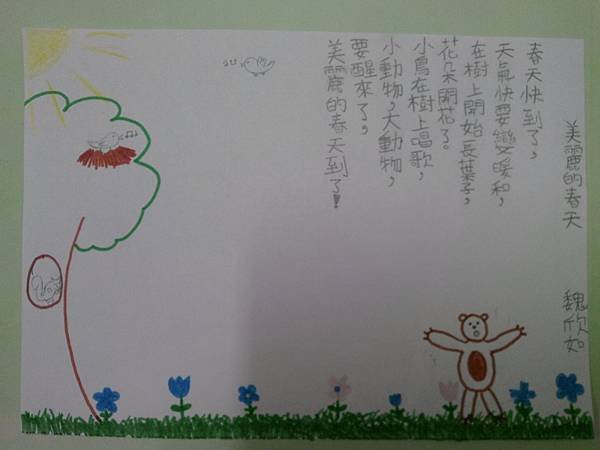 美麗的春天
魏欣如
春天快到了，
天氣快要變暖和，
在樹上開始長葉子，
花朵開花了。
小鳥在樹上唱歌，
小動物，大動物，
要醒來了，
美麗的春天到了！